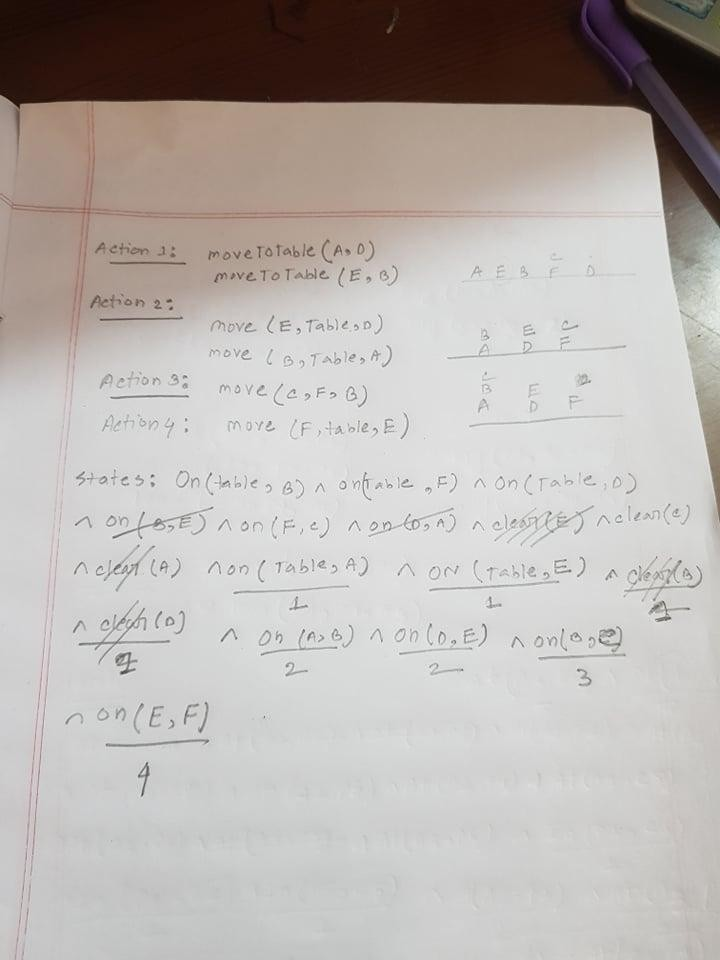 Action 1: moveToTable (A, D)
moveToTable (E, B)
C
A E B F D
Action 2:
move (E, Table, D)
move (B, Table, A)
B E C
A D F
Action 3: move (C, F, B)
Action 4: move (F, table, E)
C
B E
A D F
States: On(table, B) ∧ on(Table, F) ∧ On(Table, D)
∧ on(B, E) ∧ on(F, c) ∧ on(D, A) ∧ clear(E) ∧ clear(c)
∧ clear(A) ∧ on(Table, A) ∧ ON(Table, E) ∧ clear(B)
1 1
∧ clear(D) ∧ On(A, B) ∧ on(D, E) ∧ on(B, C)
2 2 3
∧ on(E, F)
4